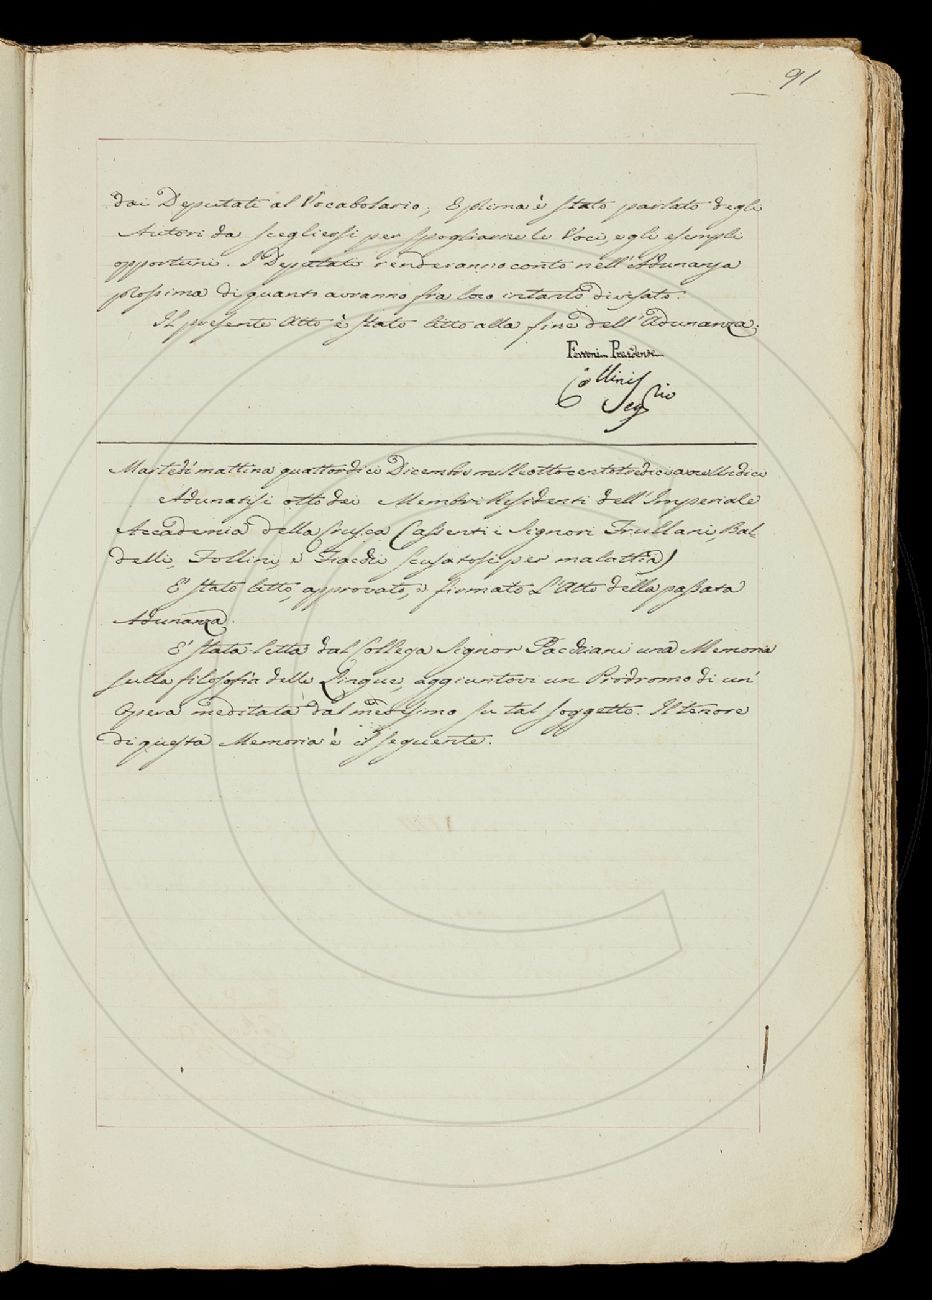 91
dai Deputati al Vocabolario; E prima è stato parlato degli
Autori da scegliersi per spogliarne le Voci, e gli esempli
opportuni. I Deputati renderanno conto nell'Adunanza
prossima di quanto avranno fra loro intanto divisato.
Il presente Atto è stato letto alla fine dell'Adunanza.
Ferroni Presidente
Collini Segrio
Martedì mattina quattordici Dicembre milleottocentotredici a ore undici
Adunatisi otto dei Membri Residenti dell'Imperiale
Accademia della Crusca (assenti i Signori Frullani, Bal-
delli, Follini, e Fiacchi scusatosi per malattia)
E' stato letto, approvato, e firmato l'Atto della passata
Adunanza.
E' stata letta dal Collega Signor Pacchiani una Memoria
sulla filosofia delle Lingue, aggiuntovi un Prodromo di un'
Opera meditata dal medesimo su tal soggetto. Il tenore
di questa Memoria è il seguente.